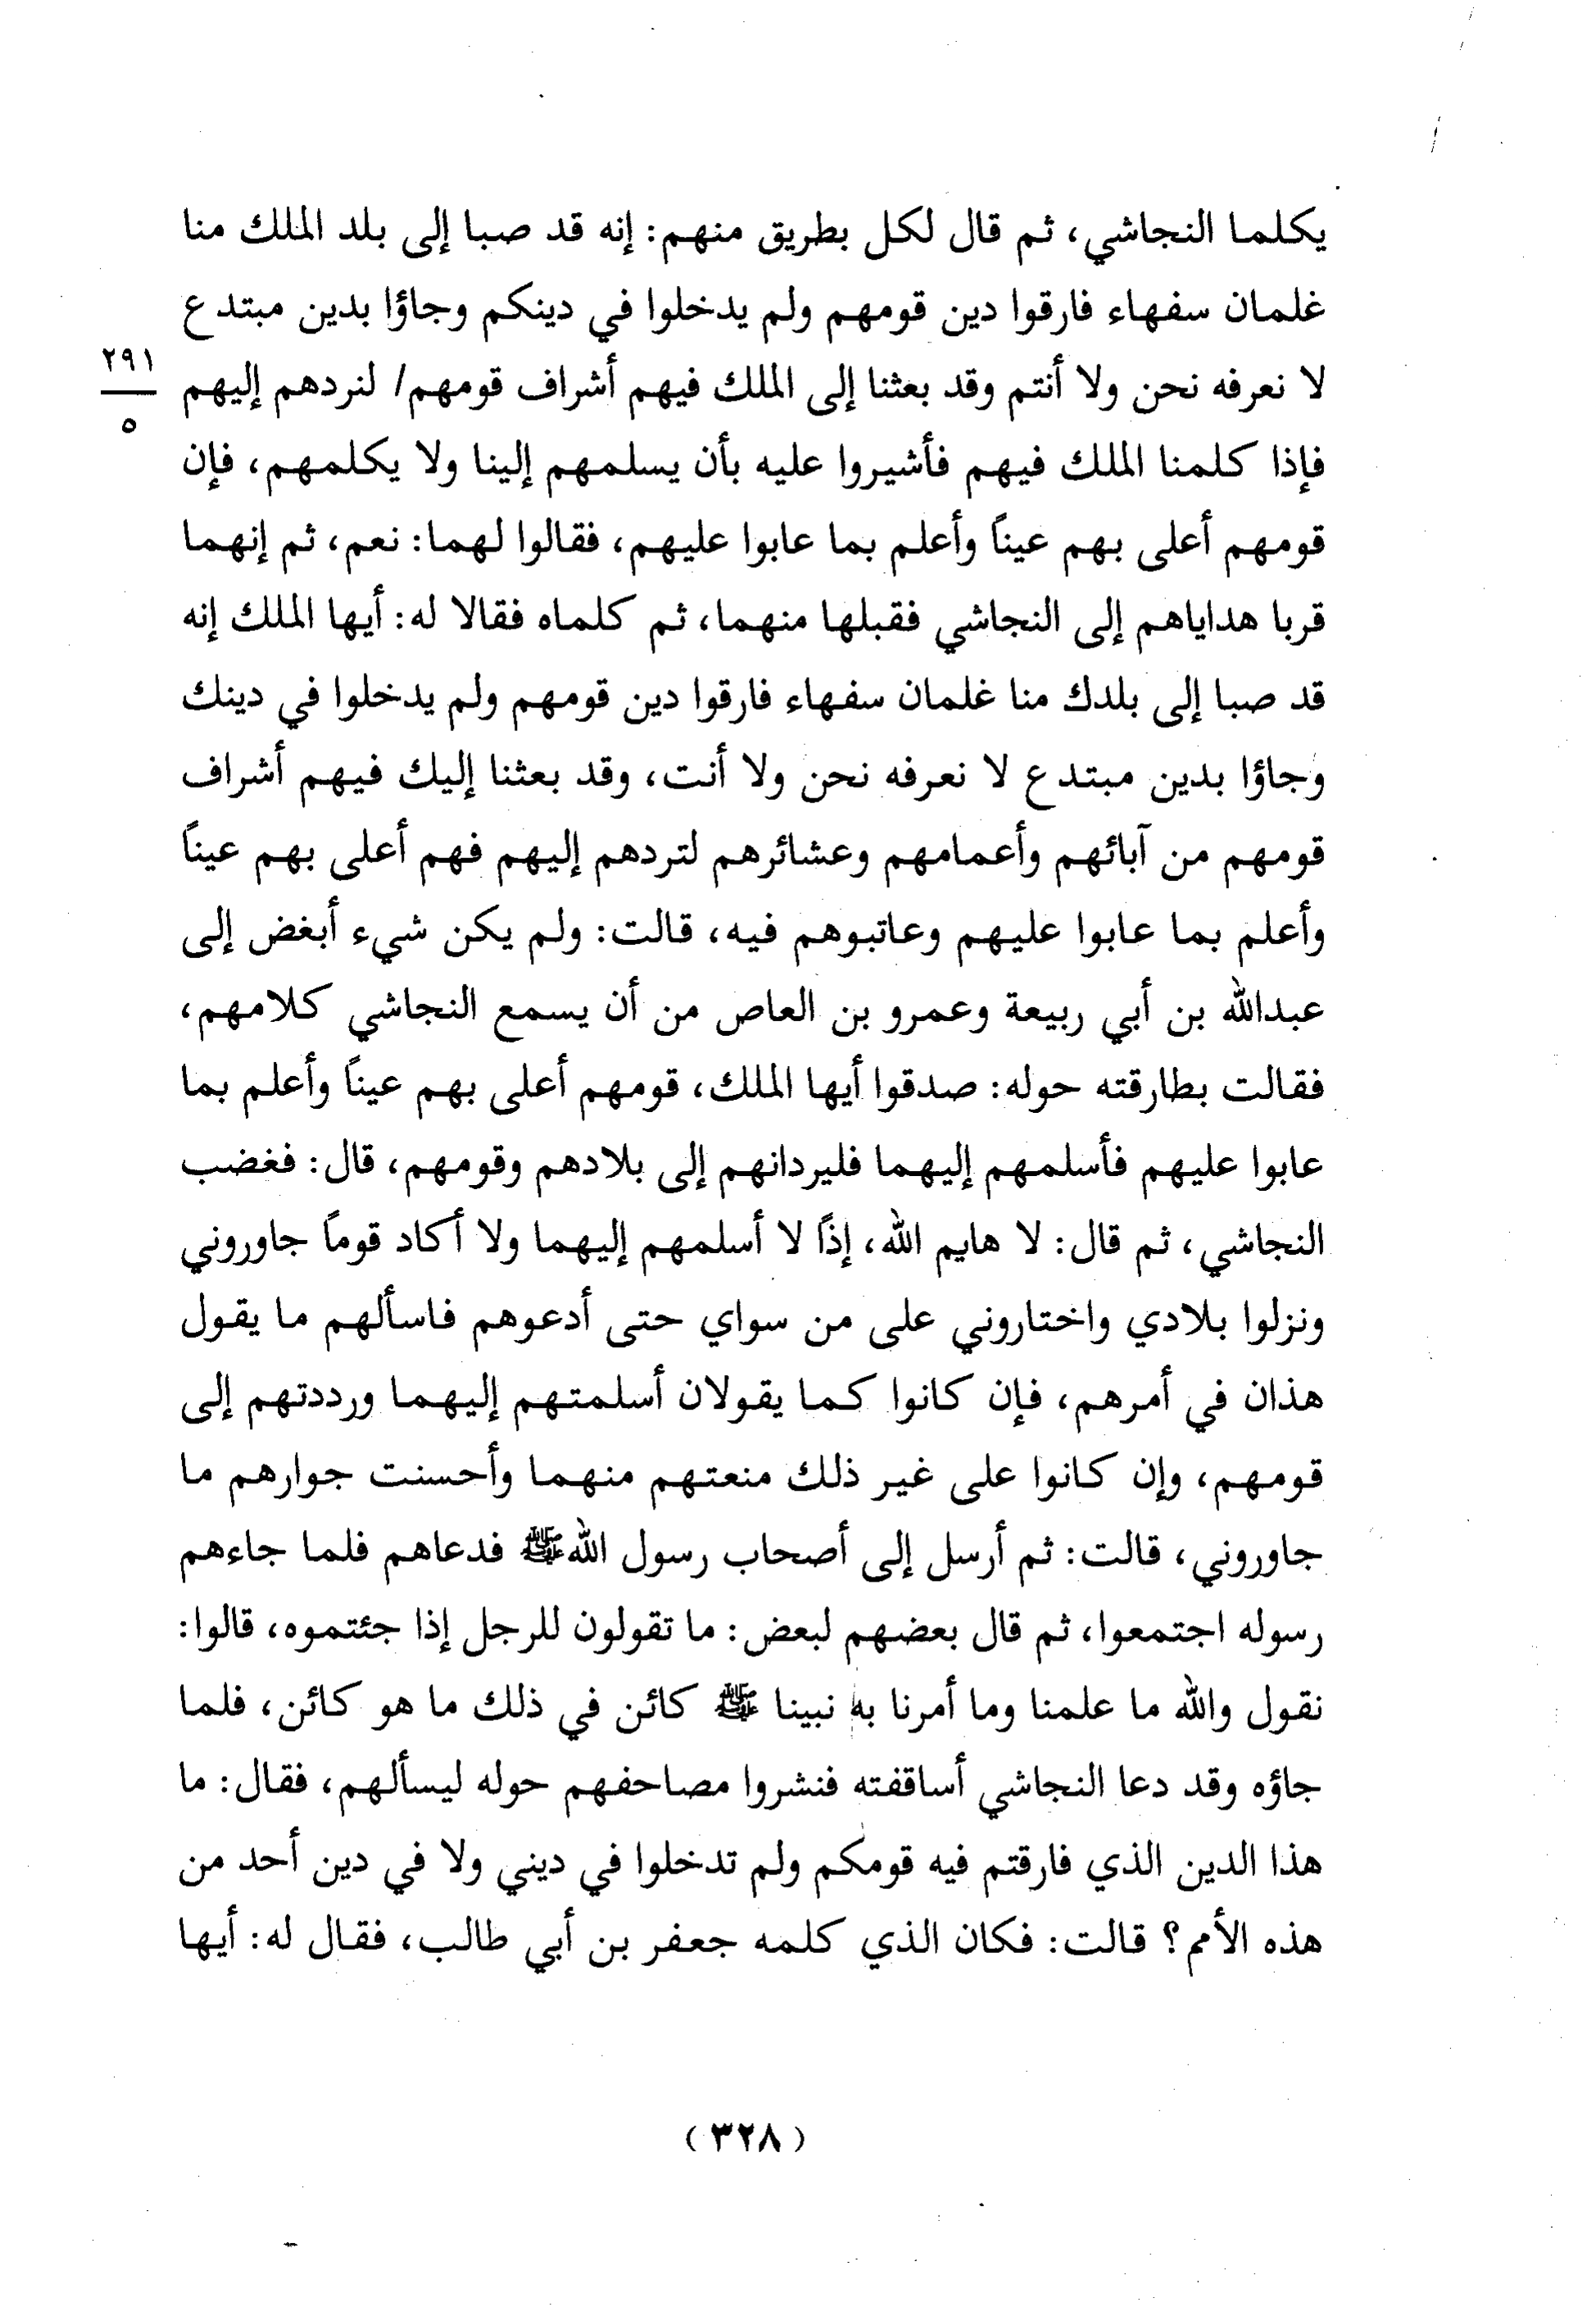 يكلما النجاشي، ثم قال لكل بطريق منهم: إنه قد صبا إلى بلد الملك منا
غلمان سفهاء فارقوا دين قومهم ولم يدخلوا في دينكم وجاؤا بدين مبتدع
لا نعرفه نحن ولا أنتم وقد بعثنا إلى الملك فيهم أشراف قومهم/ لنردهم إليهم
٢٩١
٥
فإذا كلمنا الملك فيهم فأشيروا عليه بأن يسلمهم إلينا ولا يكلمهم، فإن
قومهم أعلى بهم عيناً وأعلم بما عابوا عليهم، فقالوا لهما: نعم، ثم إنهما
قربا هداياهم إلى النجاشي فقبلها منهما، ثم كلماه فقالا له: أيها الملك إنه
قد صبا إلى بلدك منا غلمان سفهاء فارقوا دين قومهم ولم يدخلوا في دينك
وجاؤا بدين مبتدع لا نعرفه نحن ولا أنت، وقد بعثنا إليك فيهم أشراف
قومهم من آبائهم وأعمامهم وعشائرهم لتردهم إليهم فهم أعلى بهم عيناً
وأعلم بما عابوا عليهم وعاتبوهم فيه، قالت: ولم يكن شيء أبغض إلى
عبدالله بن أبي ربيعة وعمرو بن العاص من أن يسمع النجاشي كلامهم،
فقالت بطارقته حوله: صدقوا أيها الملك، قومهم أعلى بهم عيناً وأعلم بما
عابوا عليهم فأسلمهم إليهما فليردانهم إلى بلادهم وقومهم، قال: فغضب
النجاشي، ثم قال: لا هايم الله، إذاً لا أسلمهم إليهما ولا أكاد قوماً جاوروني
ونزلوا بلادي واختاروني على من سواي حتى أدعوهم فاسألهم ما يقول
هذان في أمرهم، فإن كانوا كما يقولان أسلمتهم إليهما ورددتهم إلى
قومهم، وإن كانوا على غير ذلك منعتهم منهما وأحسنت جوارهم ما
جاوروني، قالت: ثم أرسل إلى أصحاب رسول الله ﷺ فدعاهم فلما جاءهم
رسوله اجتمعوا، ثم قال بعضهم لبعض: ما تقولون للرجل إذا جئتموه، قالوا:
نقول والله ما علمنا وما أمرنا به نبينا ﷺ كائن في ذلك ما هو كائن، فلما
جاؤه وقد دعا النجاشي أساقفته فنشروا مصاحفهم حوله ليسألهم، فقال: ما
هذا الدين الذي فارقتم فيه قومكم ولم تدخلوا في ديني ولا في دين أحد من
هذه الأمم؟ قالت: فكان الذي كلمه جعفر بن أبي طالب، فقال له: أيها
(٣٢٨)